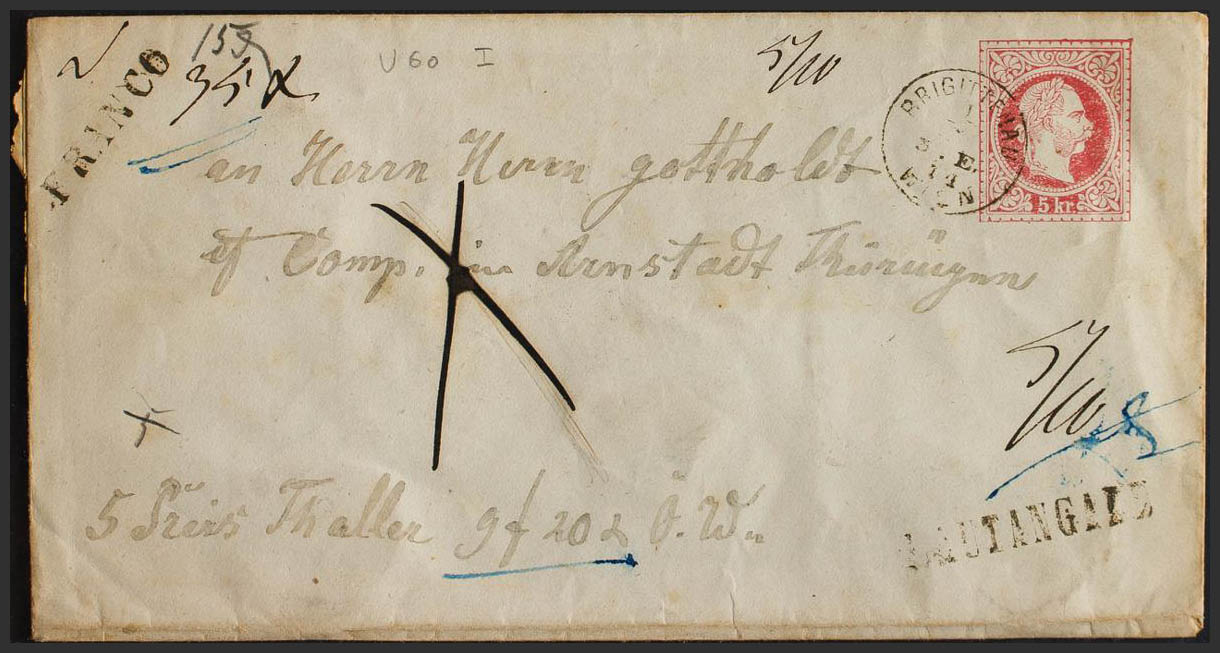 FRANCO
153
35 x
U 60 I
5/10
BRIGITTENAU
3 E.
14
WIEN
5 kr.
an Herrn Herrn gottholdt
et Comp. in Arnstadt Thüringen
5/10
5 Preis Thaller 9 f 20 x Ö. W.
LAUTANGABE